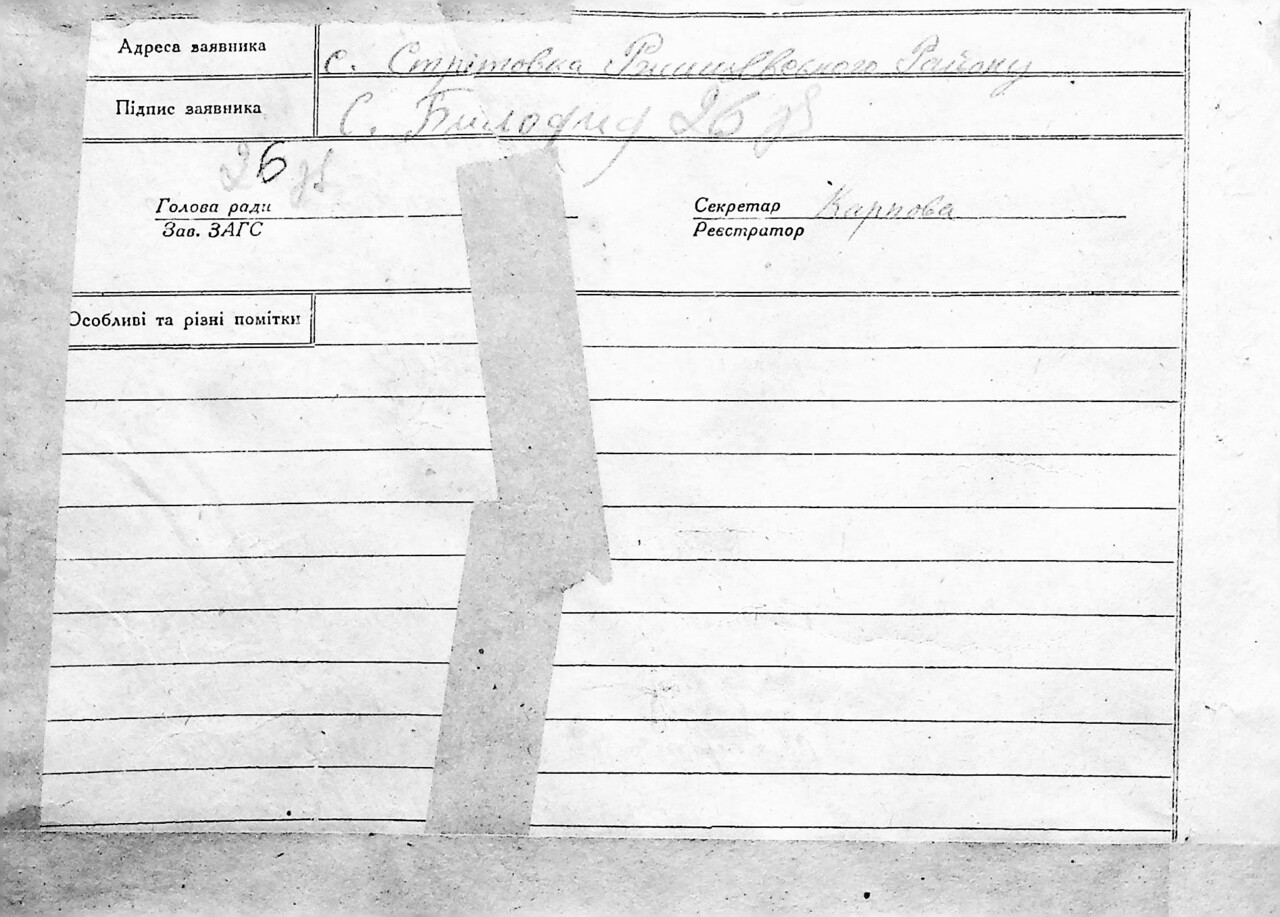 Адреса заявника с. Стрітовка Ржищевського Району
Підпис заявника С.
26
Голова ради
Зав. ЗАГС
Секретар Карпова
Реєстратор
Особливі та різні помітки